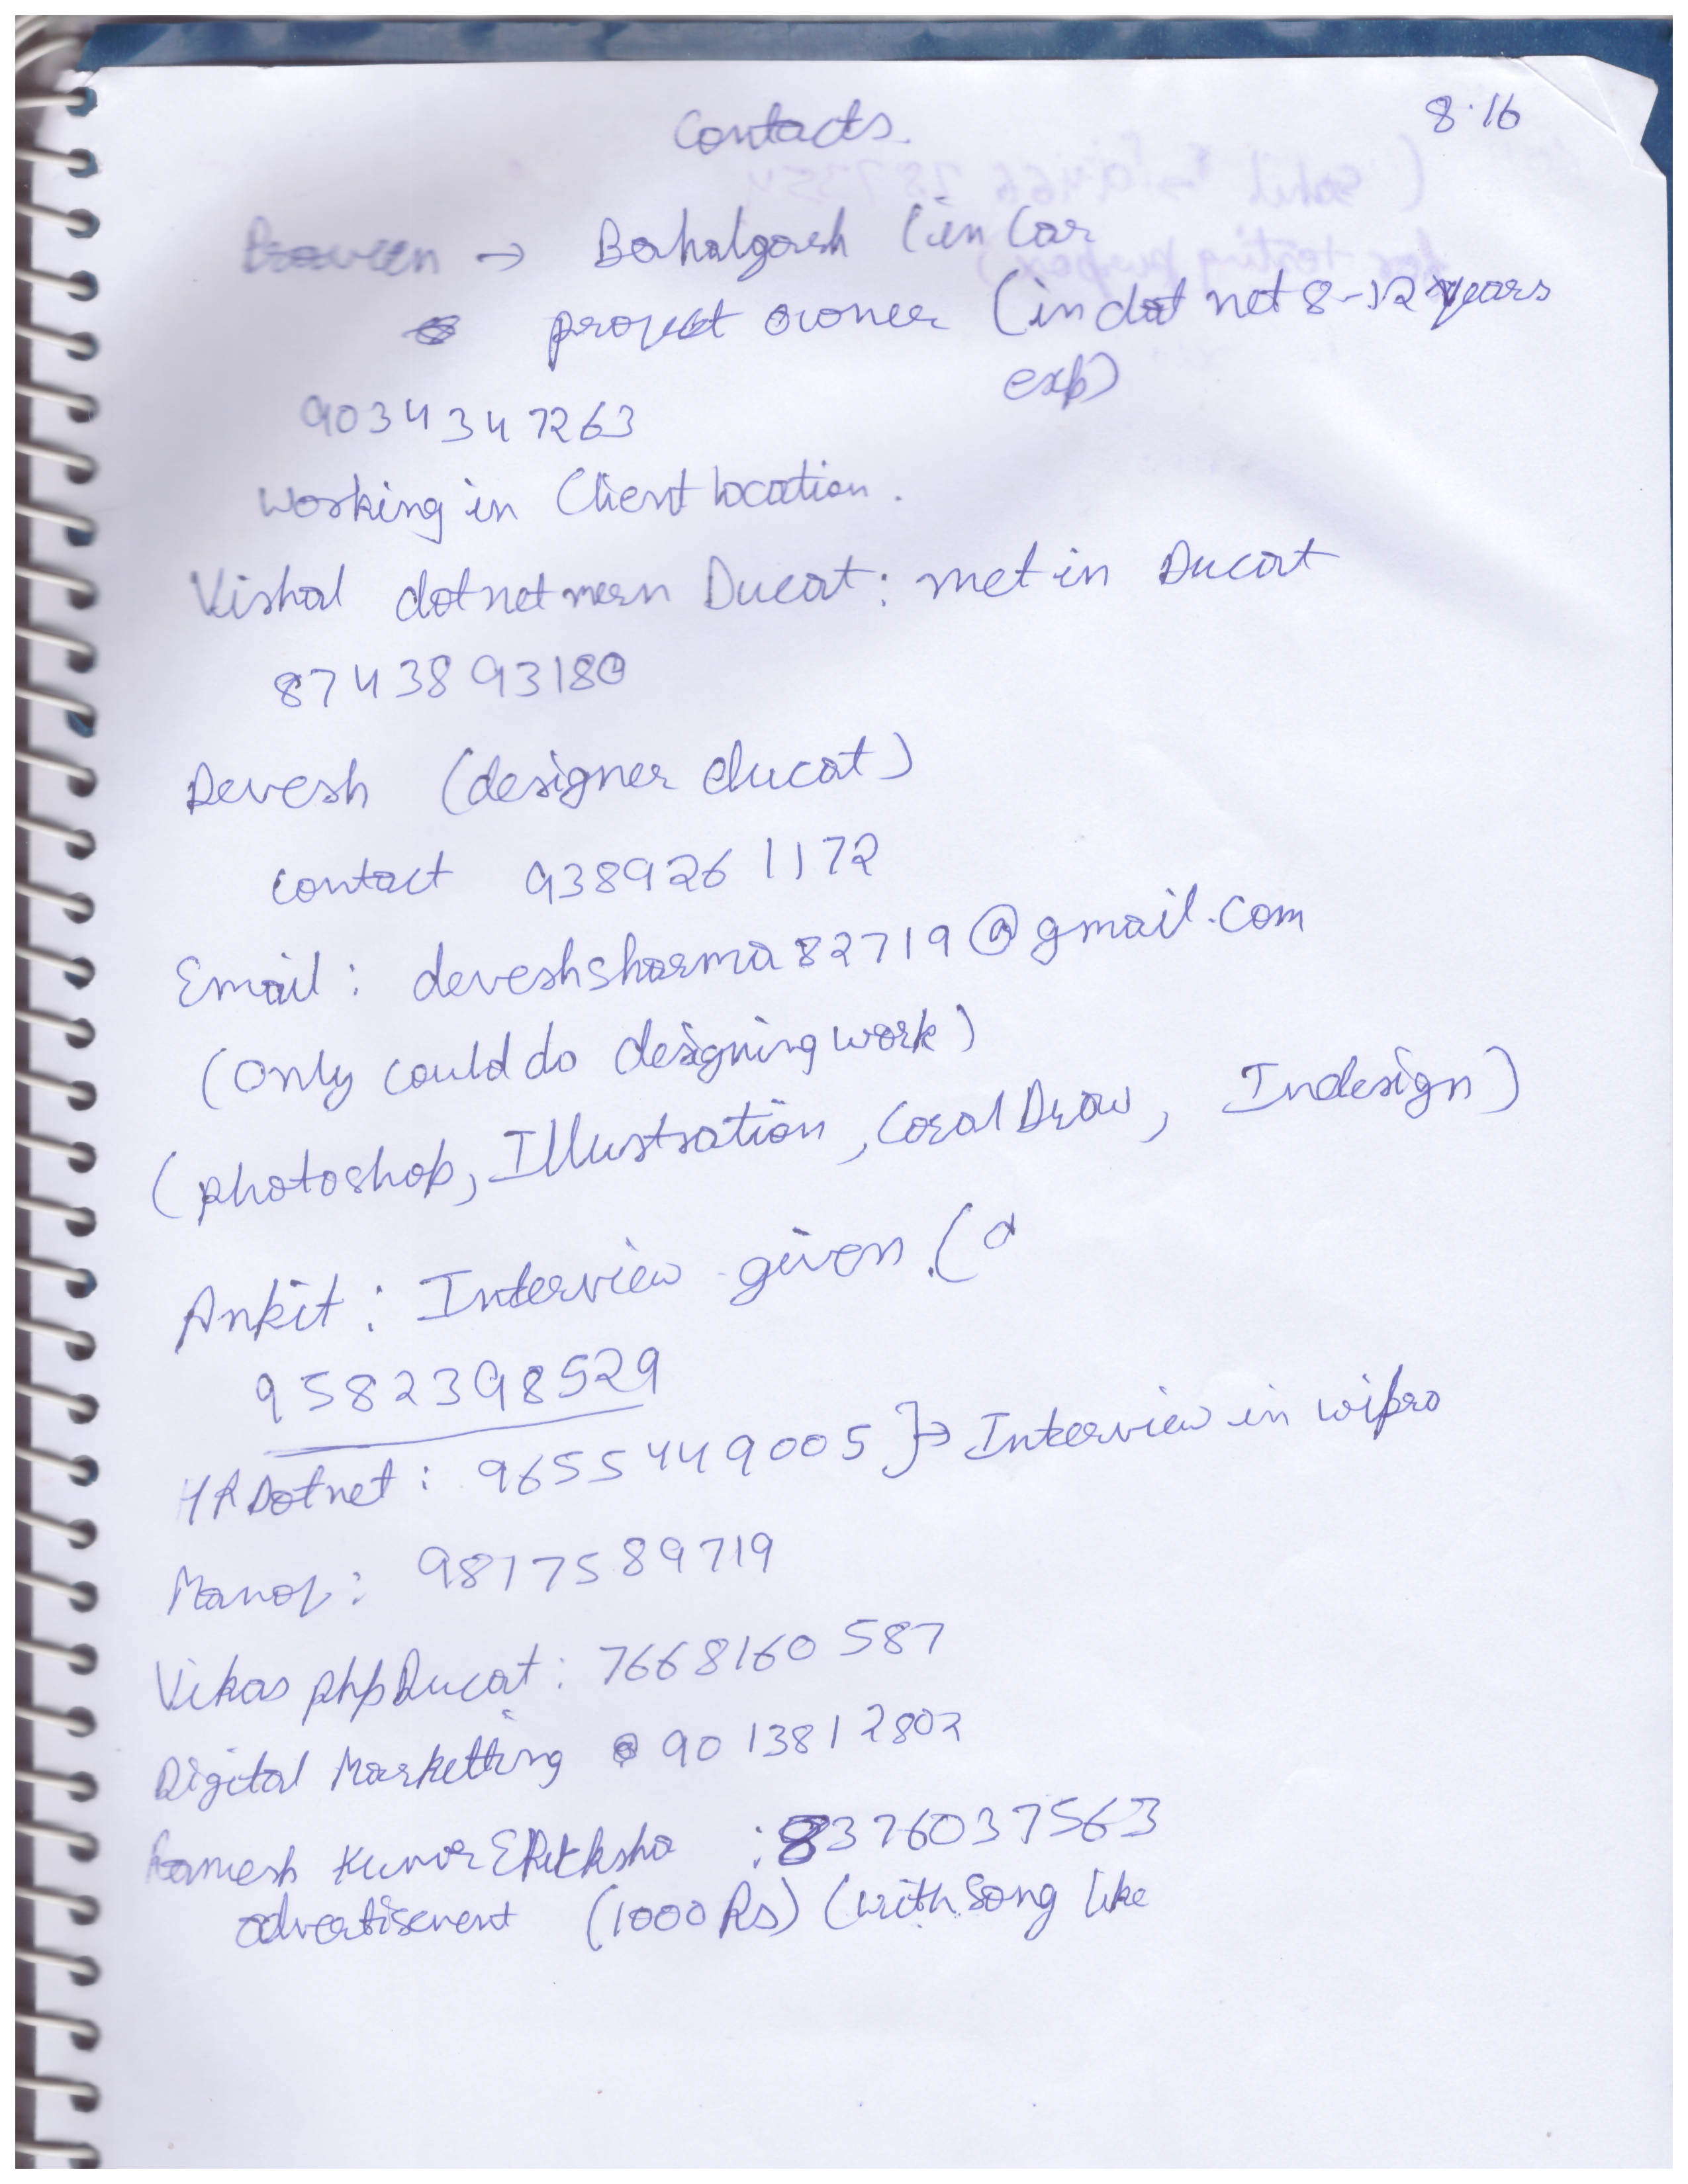 Contacts.
8.16
Praveen → Bahalgarh (in Car
project owner (in dot net 8-12 years
exp)
9034347263
working in Client location.
Vishal dotnet mern Ducat: met in Ducat
8743893180
Devesh (designer ducat)
contact 9389261172
Email: deveshsharma82719@gmail.com
(Only could do designing work)
(photoshop, Illustration, CoralDraw, Indesign)
Ankit: Interview given.(a
9582398529
HR Dotnet: 9655449005 }→ Interview in wipro
Manoj: 9817589719
Vikas php Ducat: 7668160587
Digital Marketting 9013812802
Ramesh Kumar ERicksha : 8376037563
advertisement (1000 Rs) (with Song like